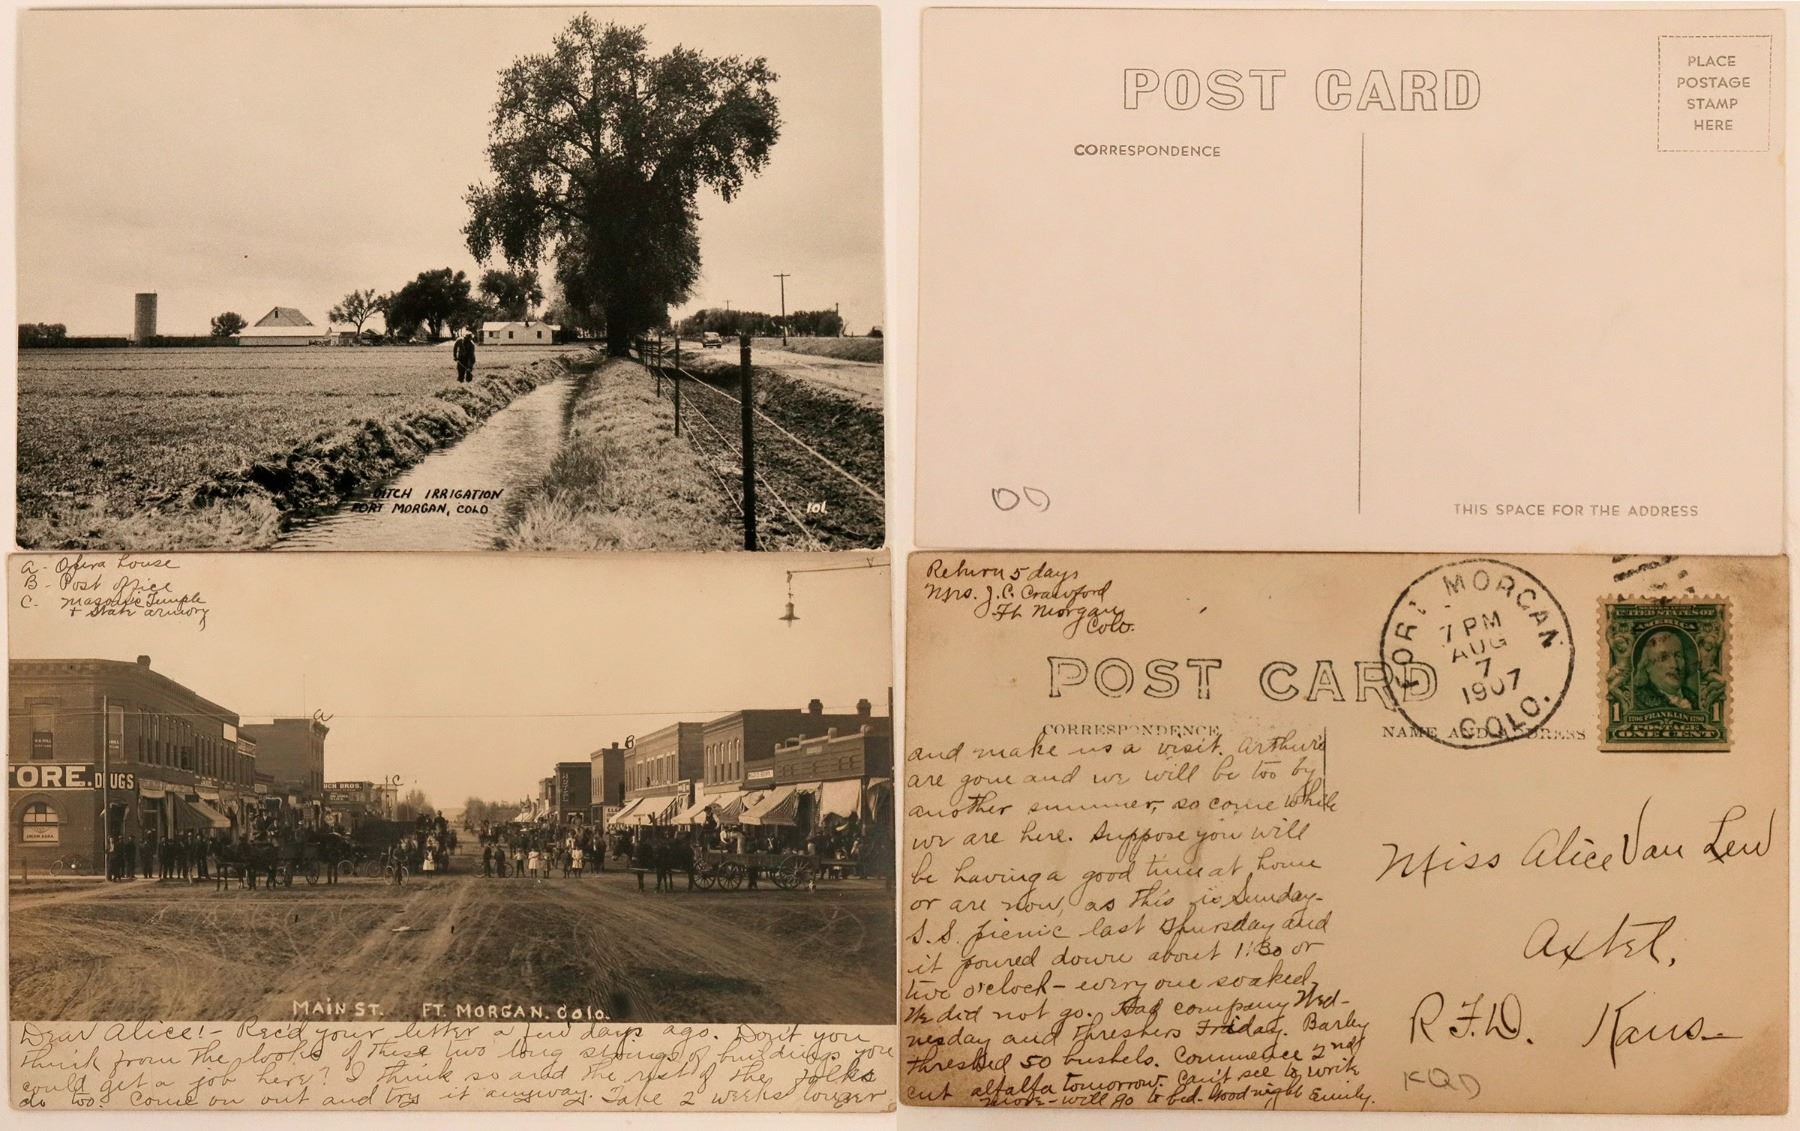 DITCH IRRIGATION
FORT MORGAN, COLO
101
POST CARD
CORRESPONDENCE
PLACE
POSTAGE
STAMP
HERE
THIS SPACE FOR THE ADDRESS
A - Opera house
B - Post office
C - Masonic Temple
+ State armory
A
B
C
TORE. DRUGS
BROS.
MAIN ST. FT. MORGAN. COLO.
Dear Alice! - Rec'd your letter a few days ago. Don't you
think from the looks of these two long strings of buildings you
could get a job here? I think so and the rest of the folks
do too. Come on out and try it anyway. Take 2 weeks longer
Return 5 days
Mrs. J. C. Crawford
Ft Morgan
Colo.
POST CARD
CORRESPONDENCE
NAME AND ADDRESS
FORT MORGAN
7 PM
AUG
7
1907
COLO.
UNITED STATES OF
AMERICA
1 1706 FRANKLIN 1790 1
POSTAGE
ONE CENT
and make us a visit. Arthur's
are gone and we will be too by
another summer, so come while
we are here. Suppose you will
be having a good time at home
or are now, as this is Sunday-
S. S. picnic last Thursday and
it poured down about 1:30 or
two o'clock - every one soaked.
We did not go. Had company Wed-
nesday and threshers Friday. Barley
threshed 50 bushels. Commence 2nd
cut alfalfa tomorrow. Can't see to write
more - will go to bed. Good night Emily.
Miss Alice Van Lew
Axtel,
R.F.D. Kans-